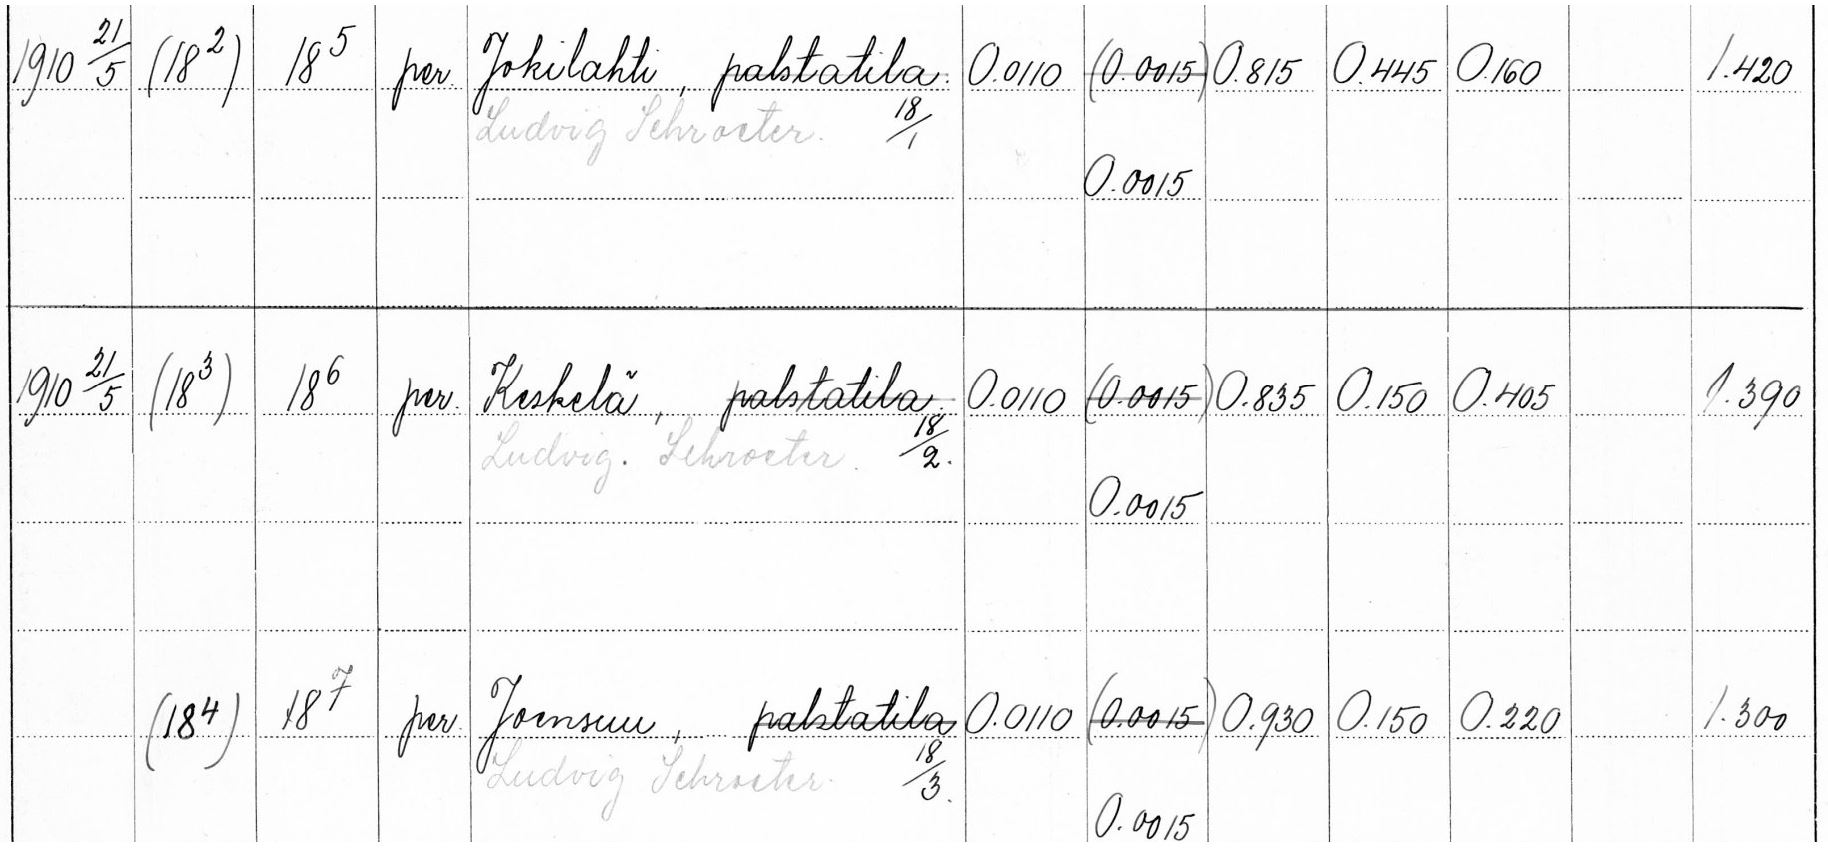 1910 21/5 (18²) 18⁵ per. Jokilahti, palstatila. 0.0110 (0.0015) 0.815 0.445 0.160 1.420
Ludvig Schroeter. 18/1
0.0015
1910 21/5 (18³) 18⁶ per. Keskelä, palstatila. 0.0110 (0.0015) 0.835 0.150 0.405 1.390
Ludvig. Schroeter. 18/2.
0.0015
(18⁴) 18⁷ per. Joensuu, palstatila 0.0110 (0.0015) 0.930 0.150 0.220 1.300
Ludvig Schroeter. 18/3.
0.0015